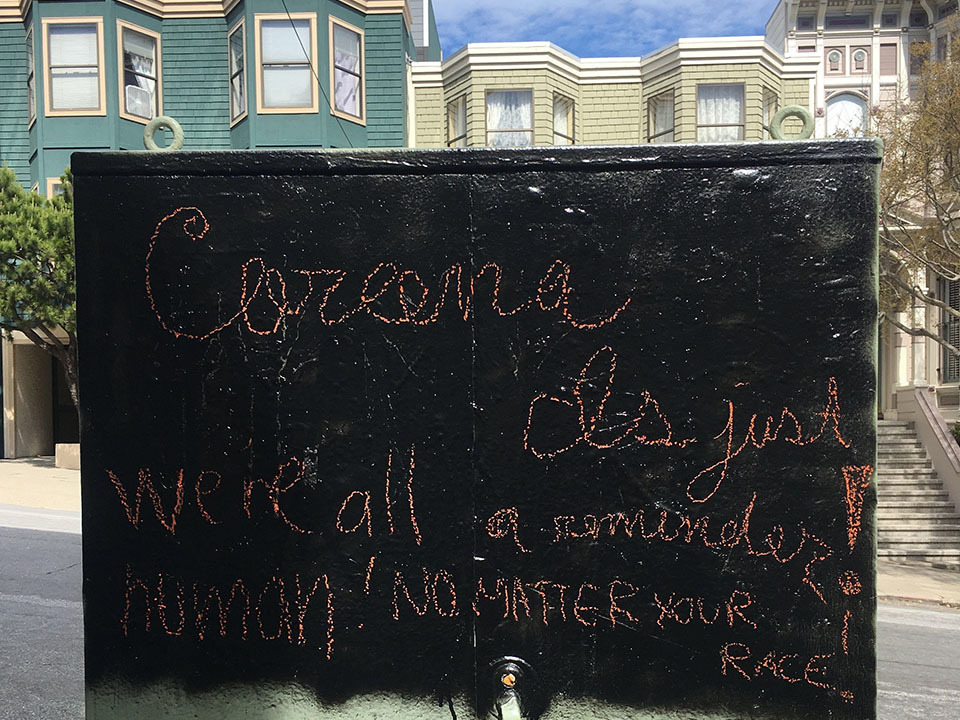 Corona
Is just
a reminder!
We're all
human!
NO MATTER YOUR
RACE!